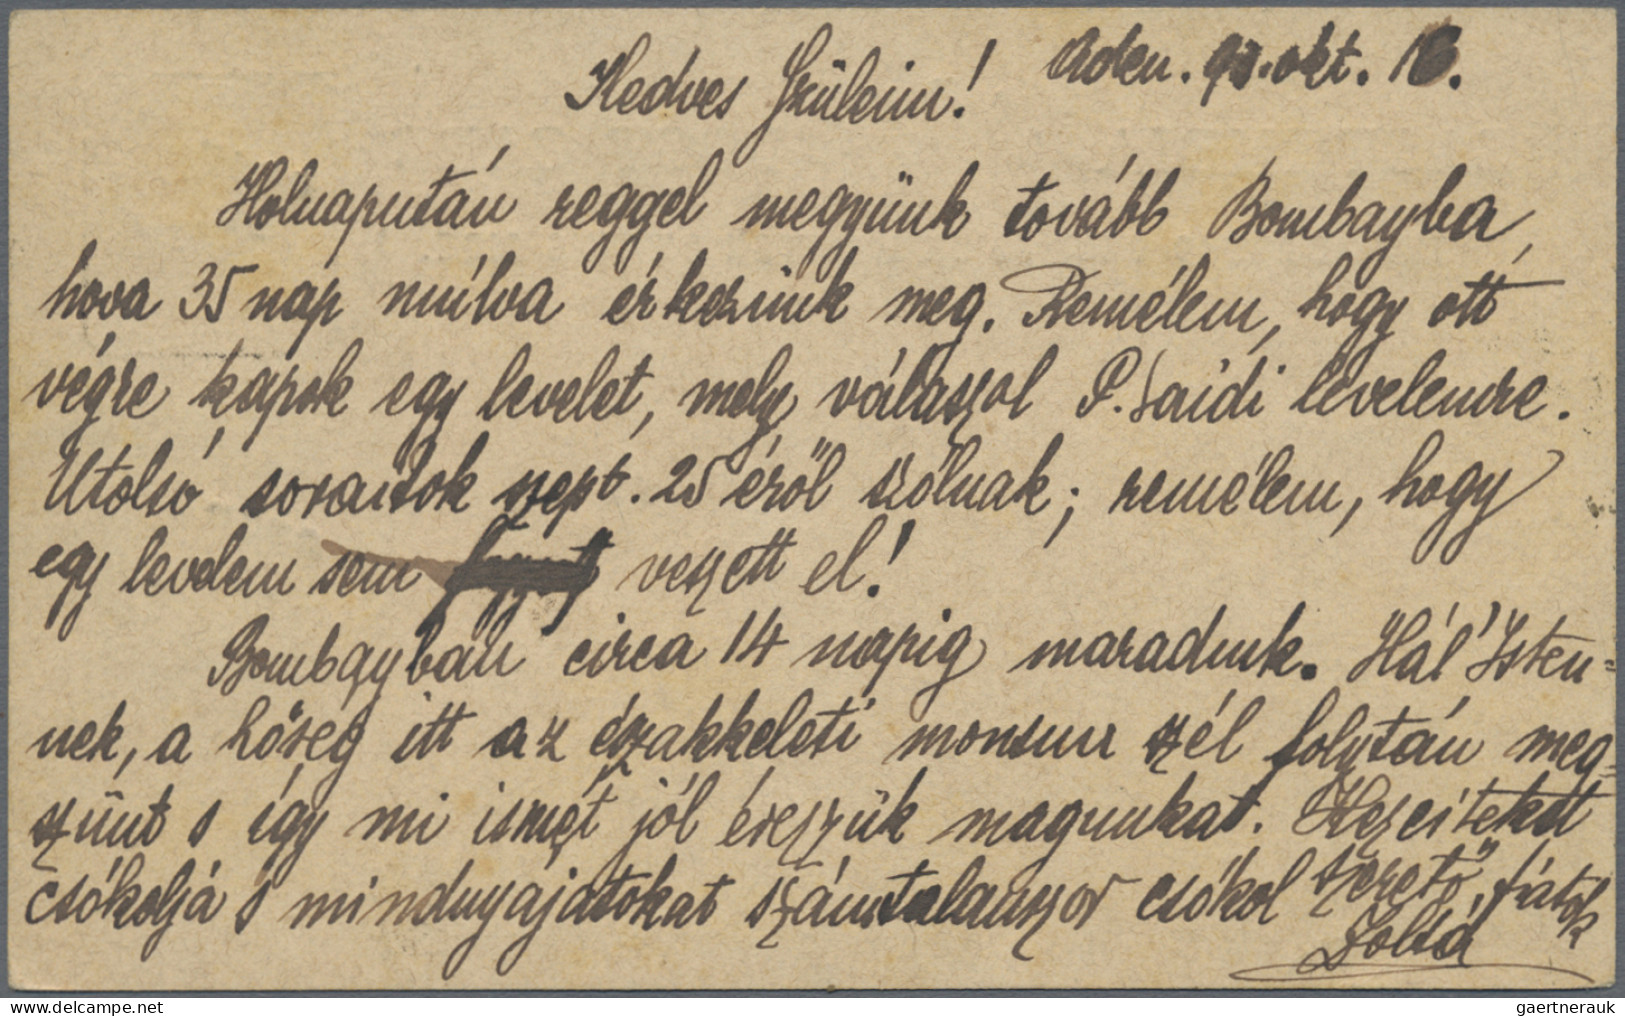 Aden. 93. okt. 16.
Kedves Szüleim!
Holnapután reggel megyünk tovább Bombayba,
hova 35 nap múlva érkezünk meg. Remélem, hogy ott
végre kapok egy levelet, mely válaszol P. Saidi levelemre.
Utolsó soraitok sept. 25 éről szólnak; remélem, hogy
egy levelem sem veszett el!
Bombayban circa 14 napig maradunk. Hál' Isten-
nek, a hőség itt az északkeleti monsun szél folytán meg-
szünt s így mi ismét jól érezzük magunkat. Kezeiteket
csókolja s mindnyájatokat számtalanszor csókol szerető fiatok
Zoltá
gaertnerauk